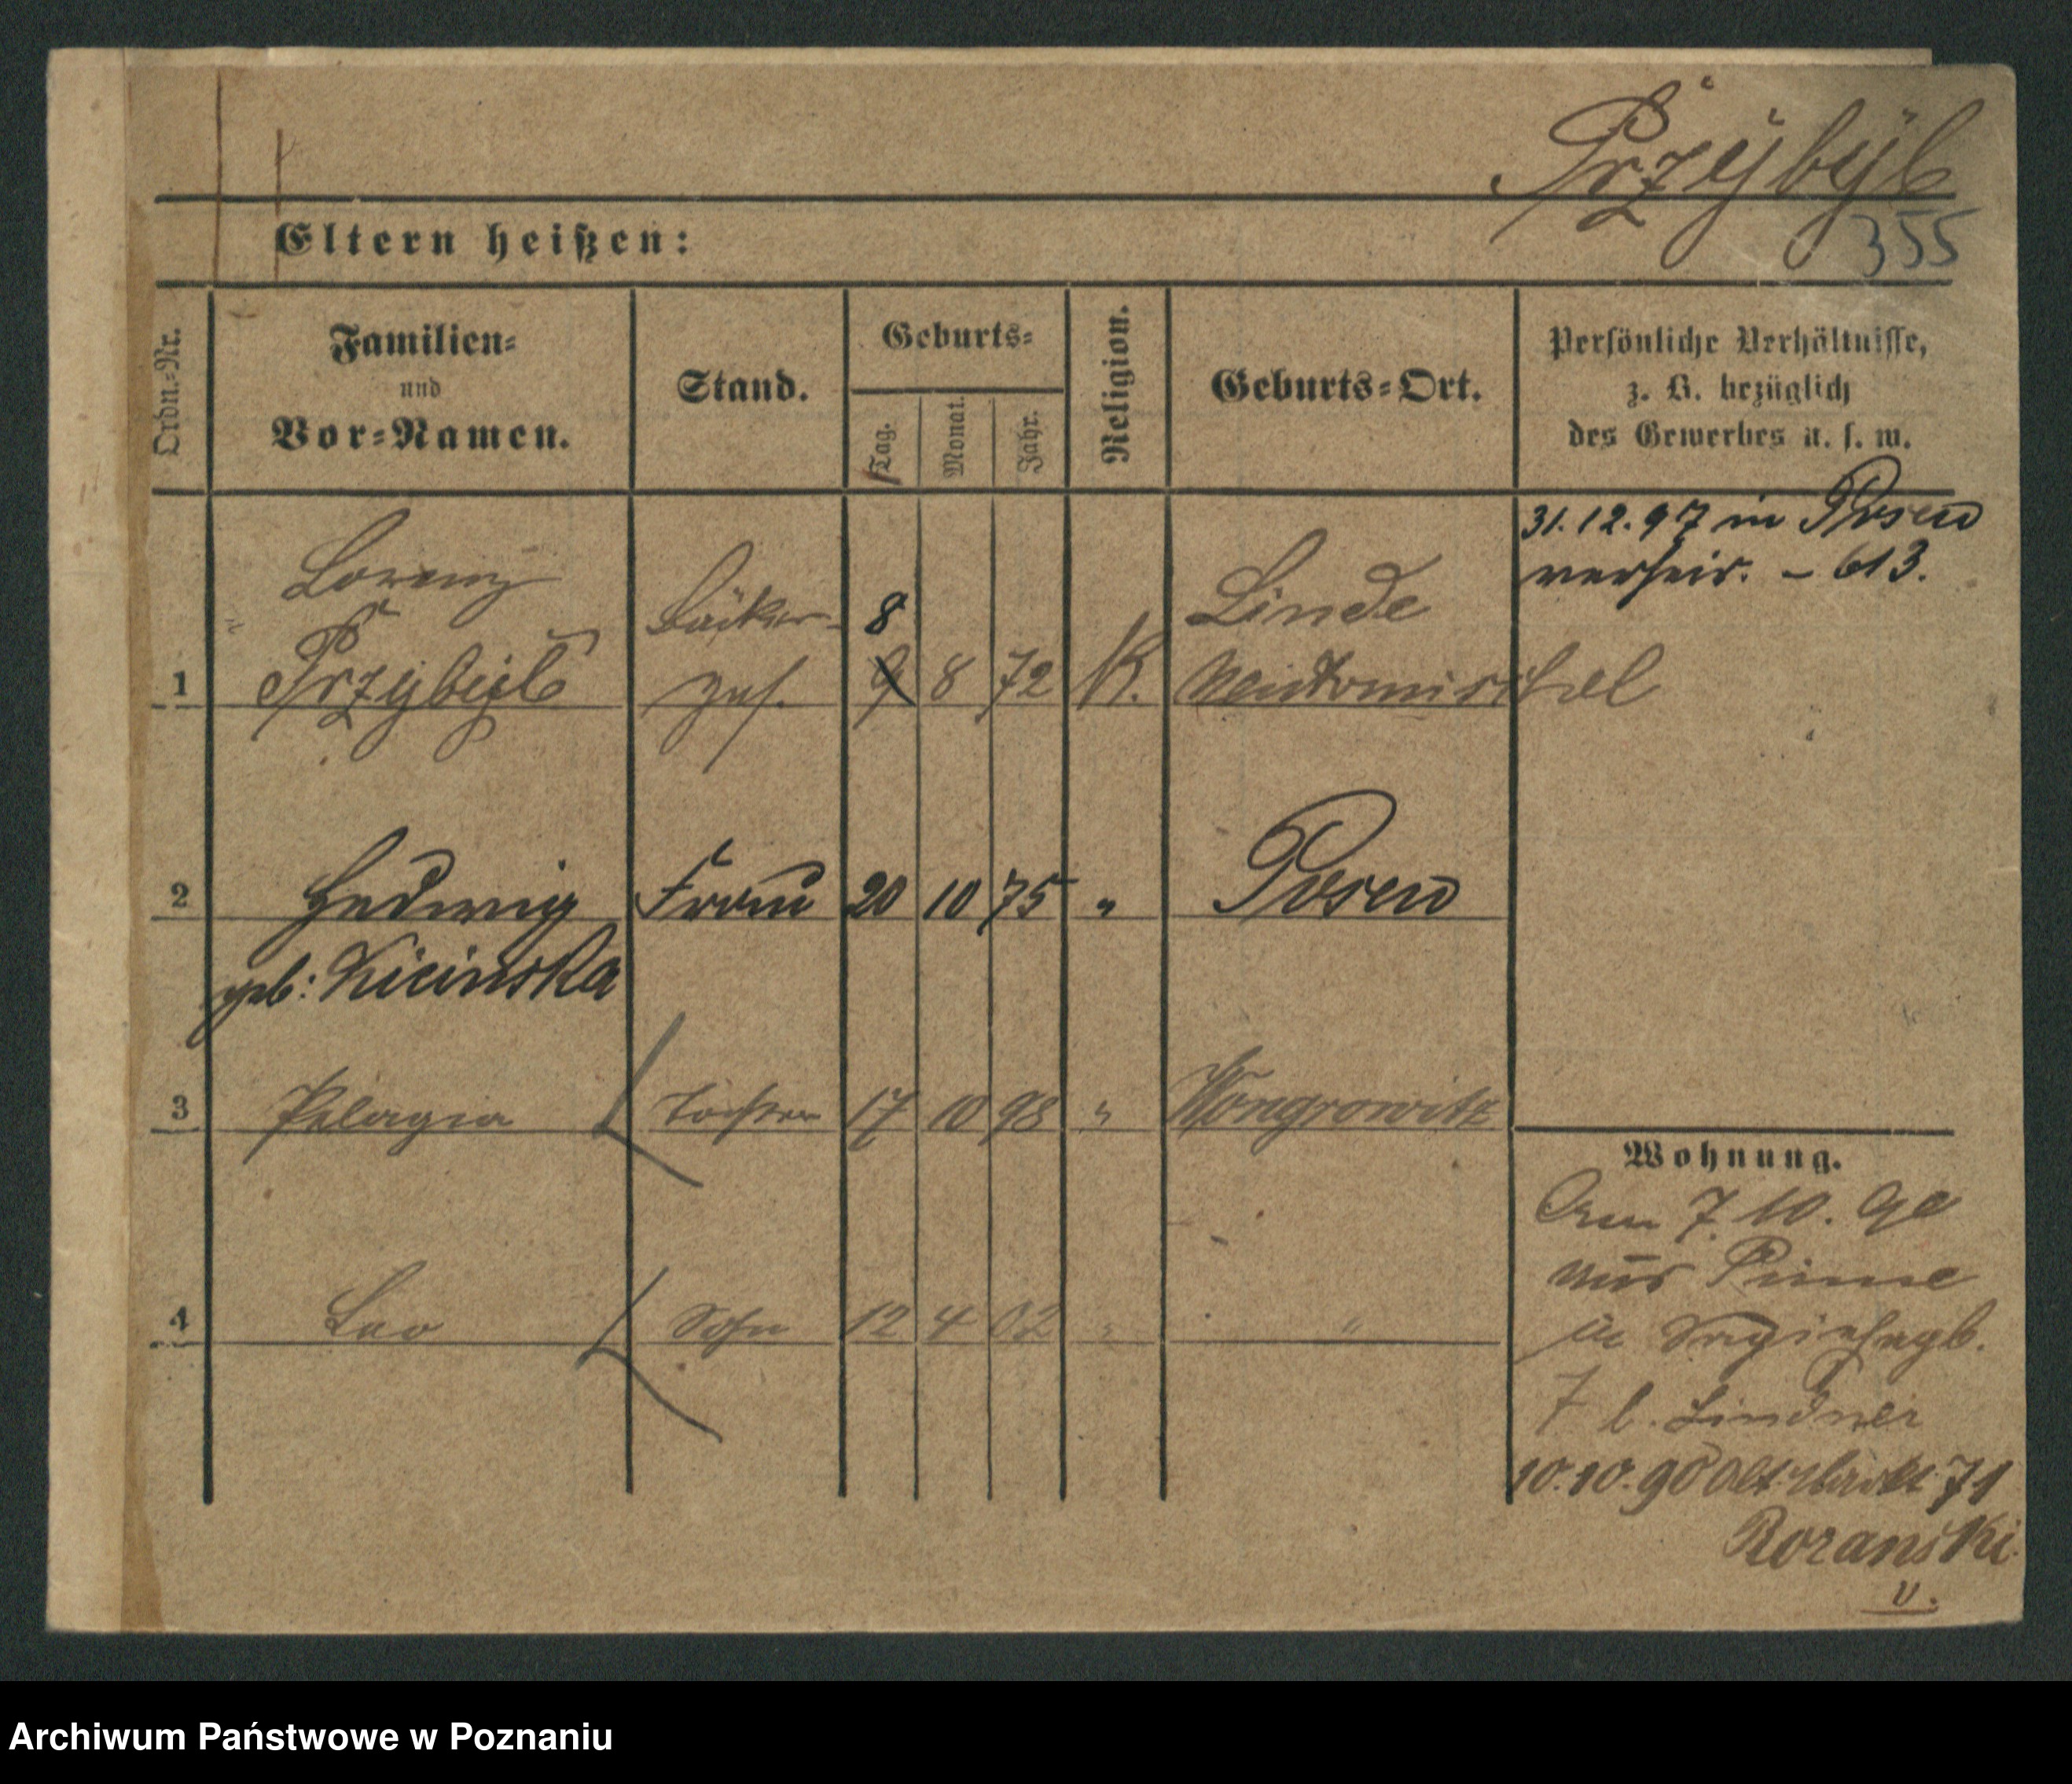 Przybyl
355
Eltern heißen:
Ordn.-Nr.
Familien-
und
Vor-Namen.
Stand.
Geburts-
Tag.
Monat.
Jahr.
Religion.
Geburts-Ort.
Persönliche Verhältnisse,
z. B. bezüglich
des Gewerbes u. s. w.
31.12.97 in Posen
verheir. – 613.
Lorenz
Bäcker-
8
Linde
1 Przybyl ges. 9 8 72 K. Neutomischel
2 Hedwig Frau 20 10 75 " Posen
geb: Kicinska
3 Pelagia Tochter 17 10 98 " Wongrowitz
Wohnung.
7. 10. 90
aus Pinne
4 Leo Sohn 12 4 02 " "
7 b. Lindner
10.10.90 Alt. Markt 71
Rozanski
v.
Archiwum Państwowe w Poznaniu